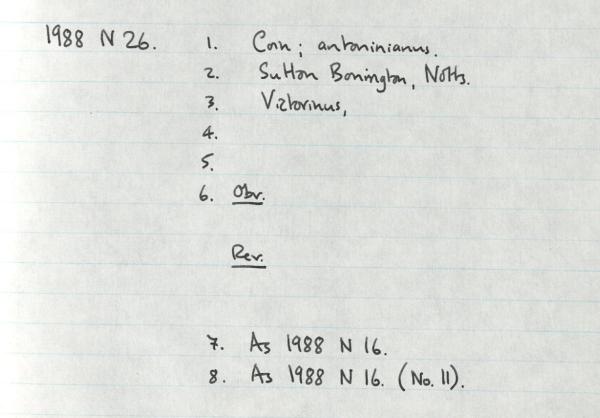 1988 N 26. 1. Coin; antoninianus.
2. Sutton Bonington, Notts.
3. Victorinus,
4.
5.
6. Obv.
Rev.
7. As 1988 N 16.
8. As 1988 N 16. (No. 11).